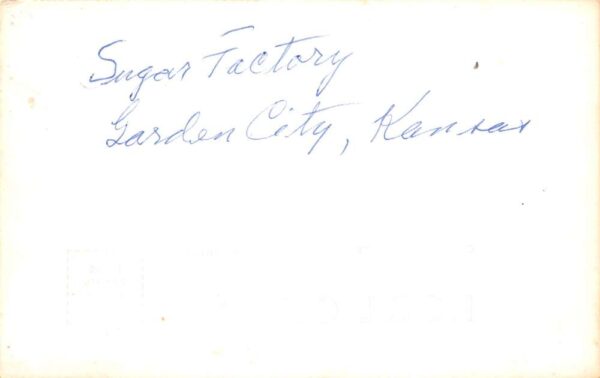 Sugar Factory
Garden City, Kansas